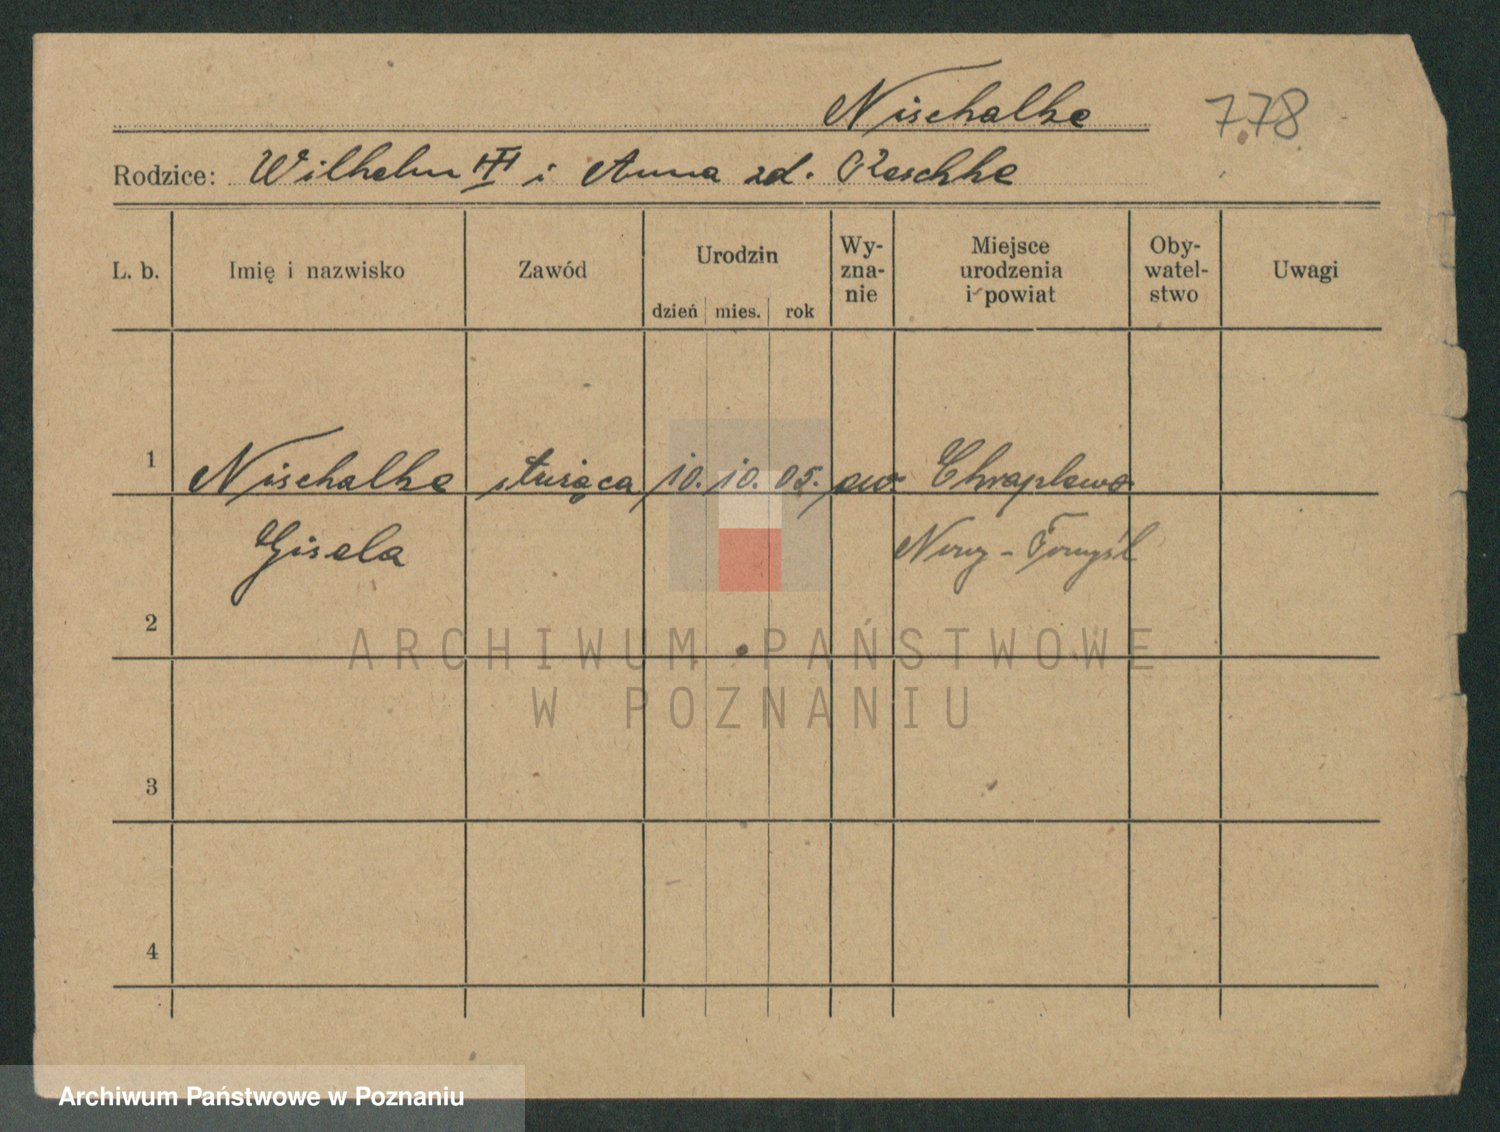 Nischalke
778
Rodzice: Wilhelm i Anna zd. Raschke
L. b. Imię i nazwisko Zawód Urodzin dzień mies. rok Wy-zna-nie Miejsce urodzenia i powiat Oby-watel-stwo Uwagi
1 Nischalke służąca 10. 10. 05. ew. Chraplewo
Gisela Nowy-Tomyśl
2
ARCHIWUM PAŃSTWOWE
W POZNANIU
3
4
Archiwum Państwowe w Poznaniu